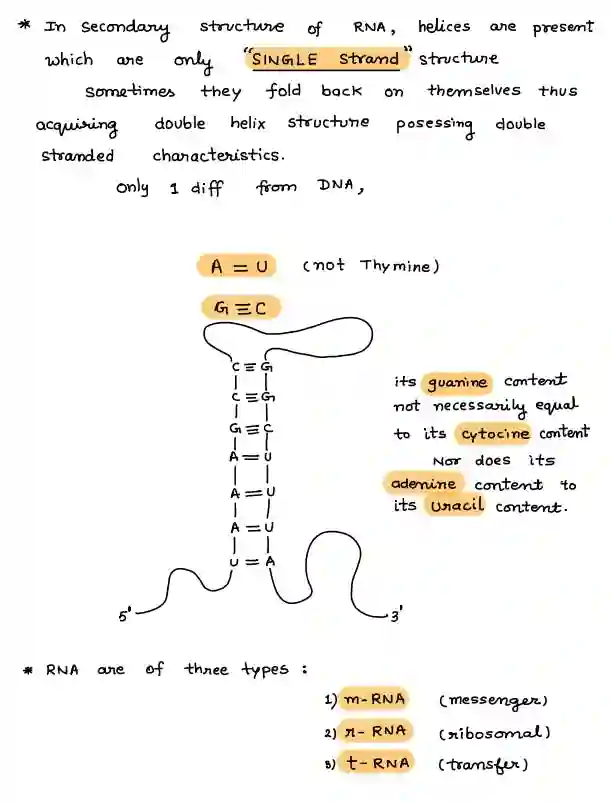 * In Secondary structure of RNA, helices are present
which are only "SINGLE Strand" structure
sometimes they fold back on themselves thus
acquiring double helix structure posessing double
stranded characteristics.
only 1 diff from DNA,
A = U (not Thymine)
G ≡ C
C ≡ G
C ≡ G
G ≡ C
A = U
A = U
A = U
U = A
5' 3'
its guanine content
not necessarily equal
to its cytocine content
Nor does its
adenine content to
its Uracil content.
* RNA are of three types :
1) m-RNA (messenger)
2) r-RNA (ribosomal)
3) t-RNA (transfer)